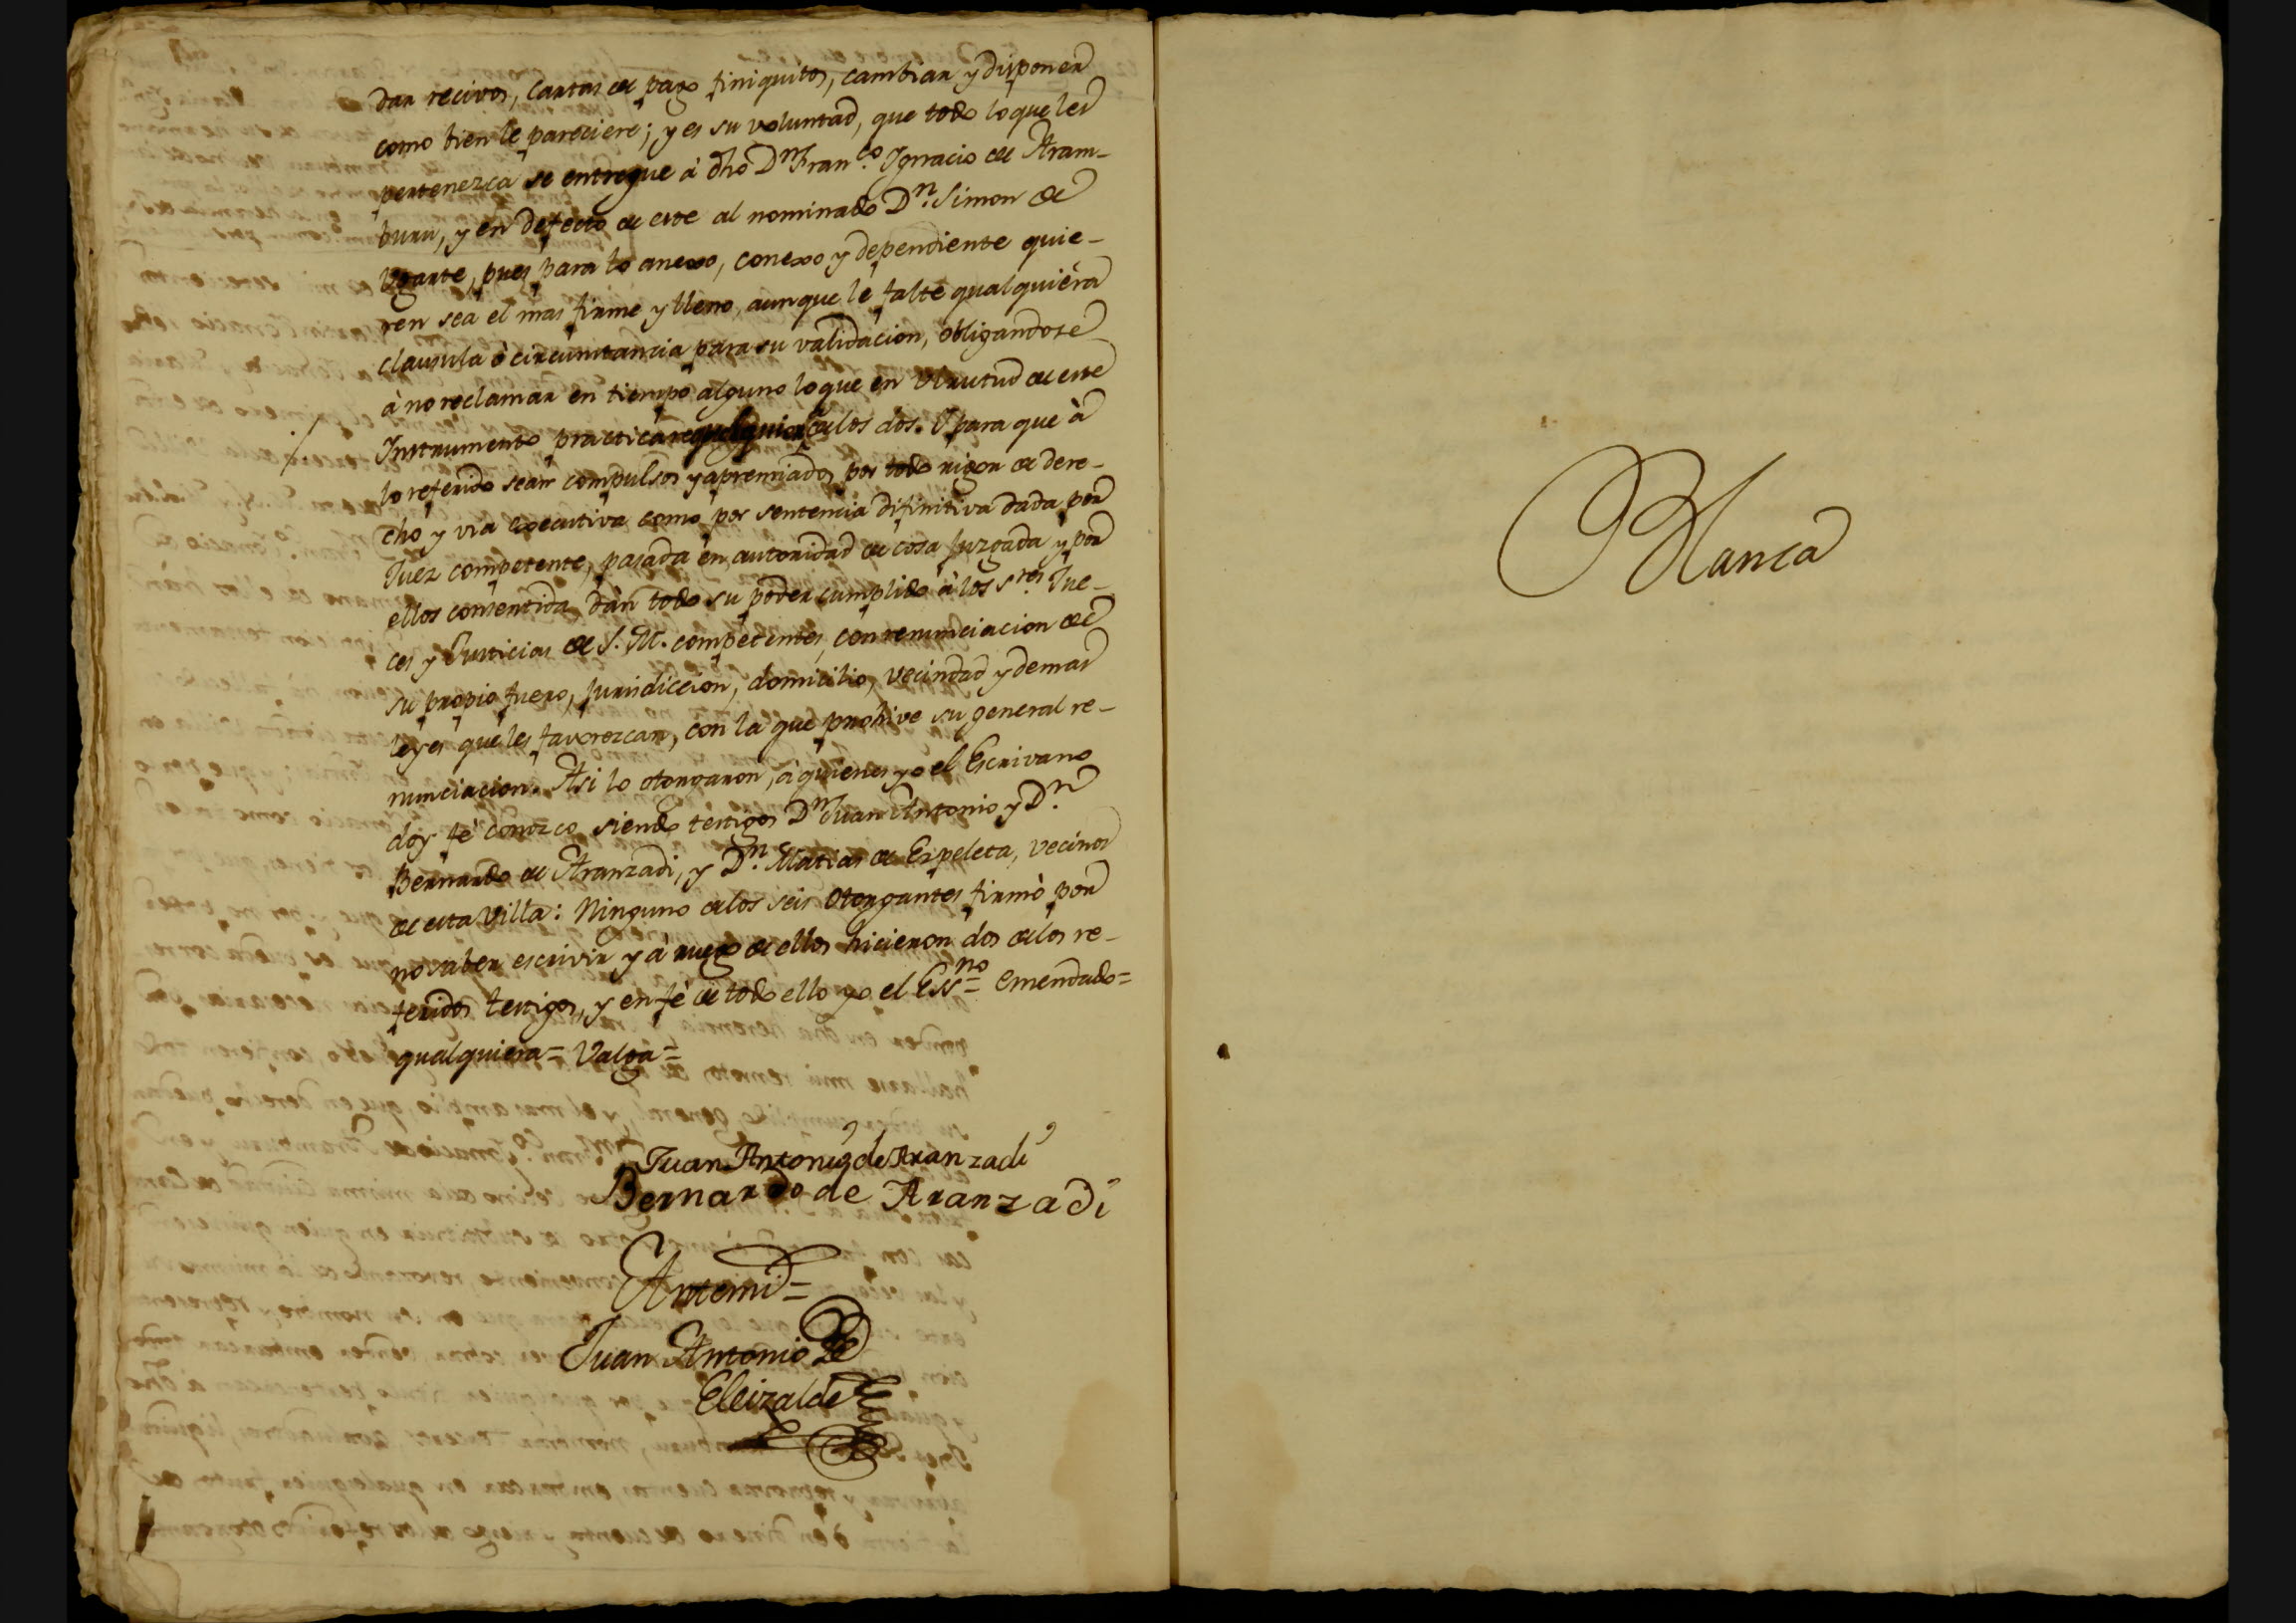 dar recivos, cartas de pago finiquitos, cambiar y disponer
como bien le pareciere; y es su voluntad, que todo lo que les
pertenezca se entregue à dho Dn Franco. Ygnacio de Aram-
buru, y en defecto de este al nominado Dn. Simon de
Vgarte, pues para lo anexo, conexo y dependiente quie-
ren sea el mas firme y lleno, aunque le falte qualquiera
clausula ò circunstancia para su validacion, obligandose
à no reclamar en tiempo alguno lo que en virtud de este
Instrumento practicare qualquiera de los dos. Y para que à
lo referido sean compulsos y apremiados por todo rigor de dere-
cho y via executiva como por sentencia difinitiva dada por
Juez competente, pasada en autoridad de cosa juzgada y por
ellos consentida dan todo su poder cumplido à los Sres. Jue-
ces y Justicias de S. M. competentes, con renunciacion de
su propio fuero, jurisdiccion, domicilio, vecindad y demas
leyes que les favorezcan, con la que prohive su general re-
nunciacion. Asi lo otorgaron, à quienes yo el Escrivano
doy fè conozco siendo testigos Dn Juan Antonio y Dn.
Bernardo de Aranzadi, y Dn. Matias de Ezpeleta, vecinos
de esta Villa: Ninguno de los seis Otorgantes firmò por
no saber escrivir y à ruego de ellos hicieron dos de los re-
feridos testigos, y en fè de todo ello yo el Essno= Emendado=
qualquiera= Valga=
Juan Antonio de Aranzadi
Bernardo de Aranzadi
Antemi=
Juan Antonio de
Eleizalde
Blanca